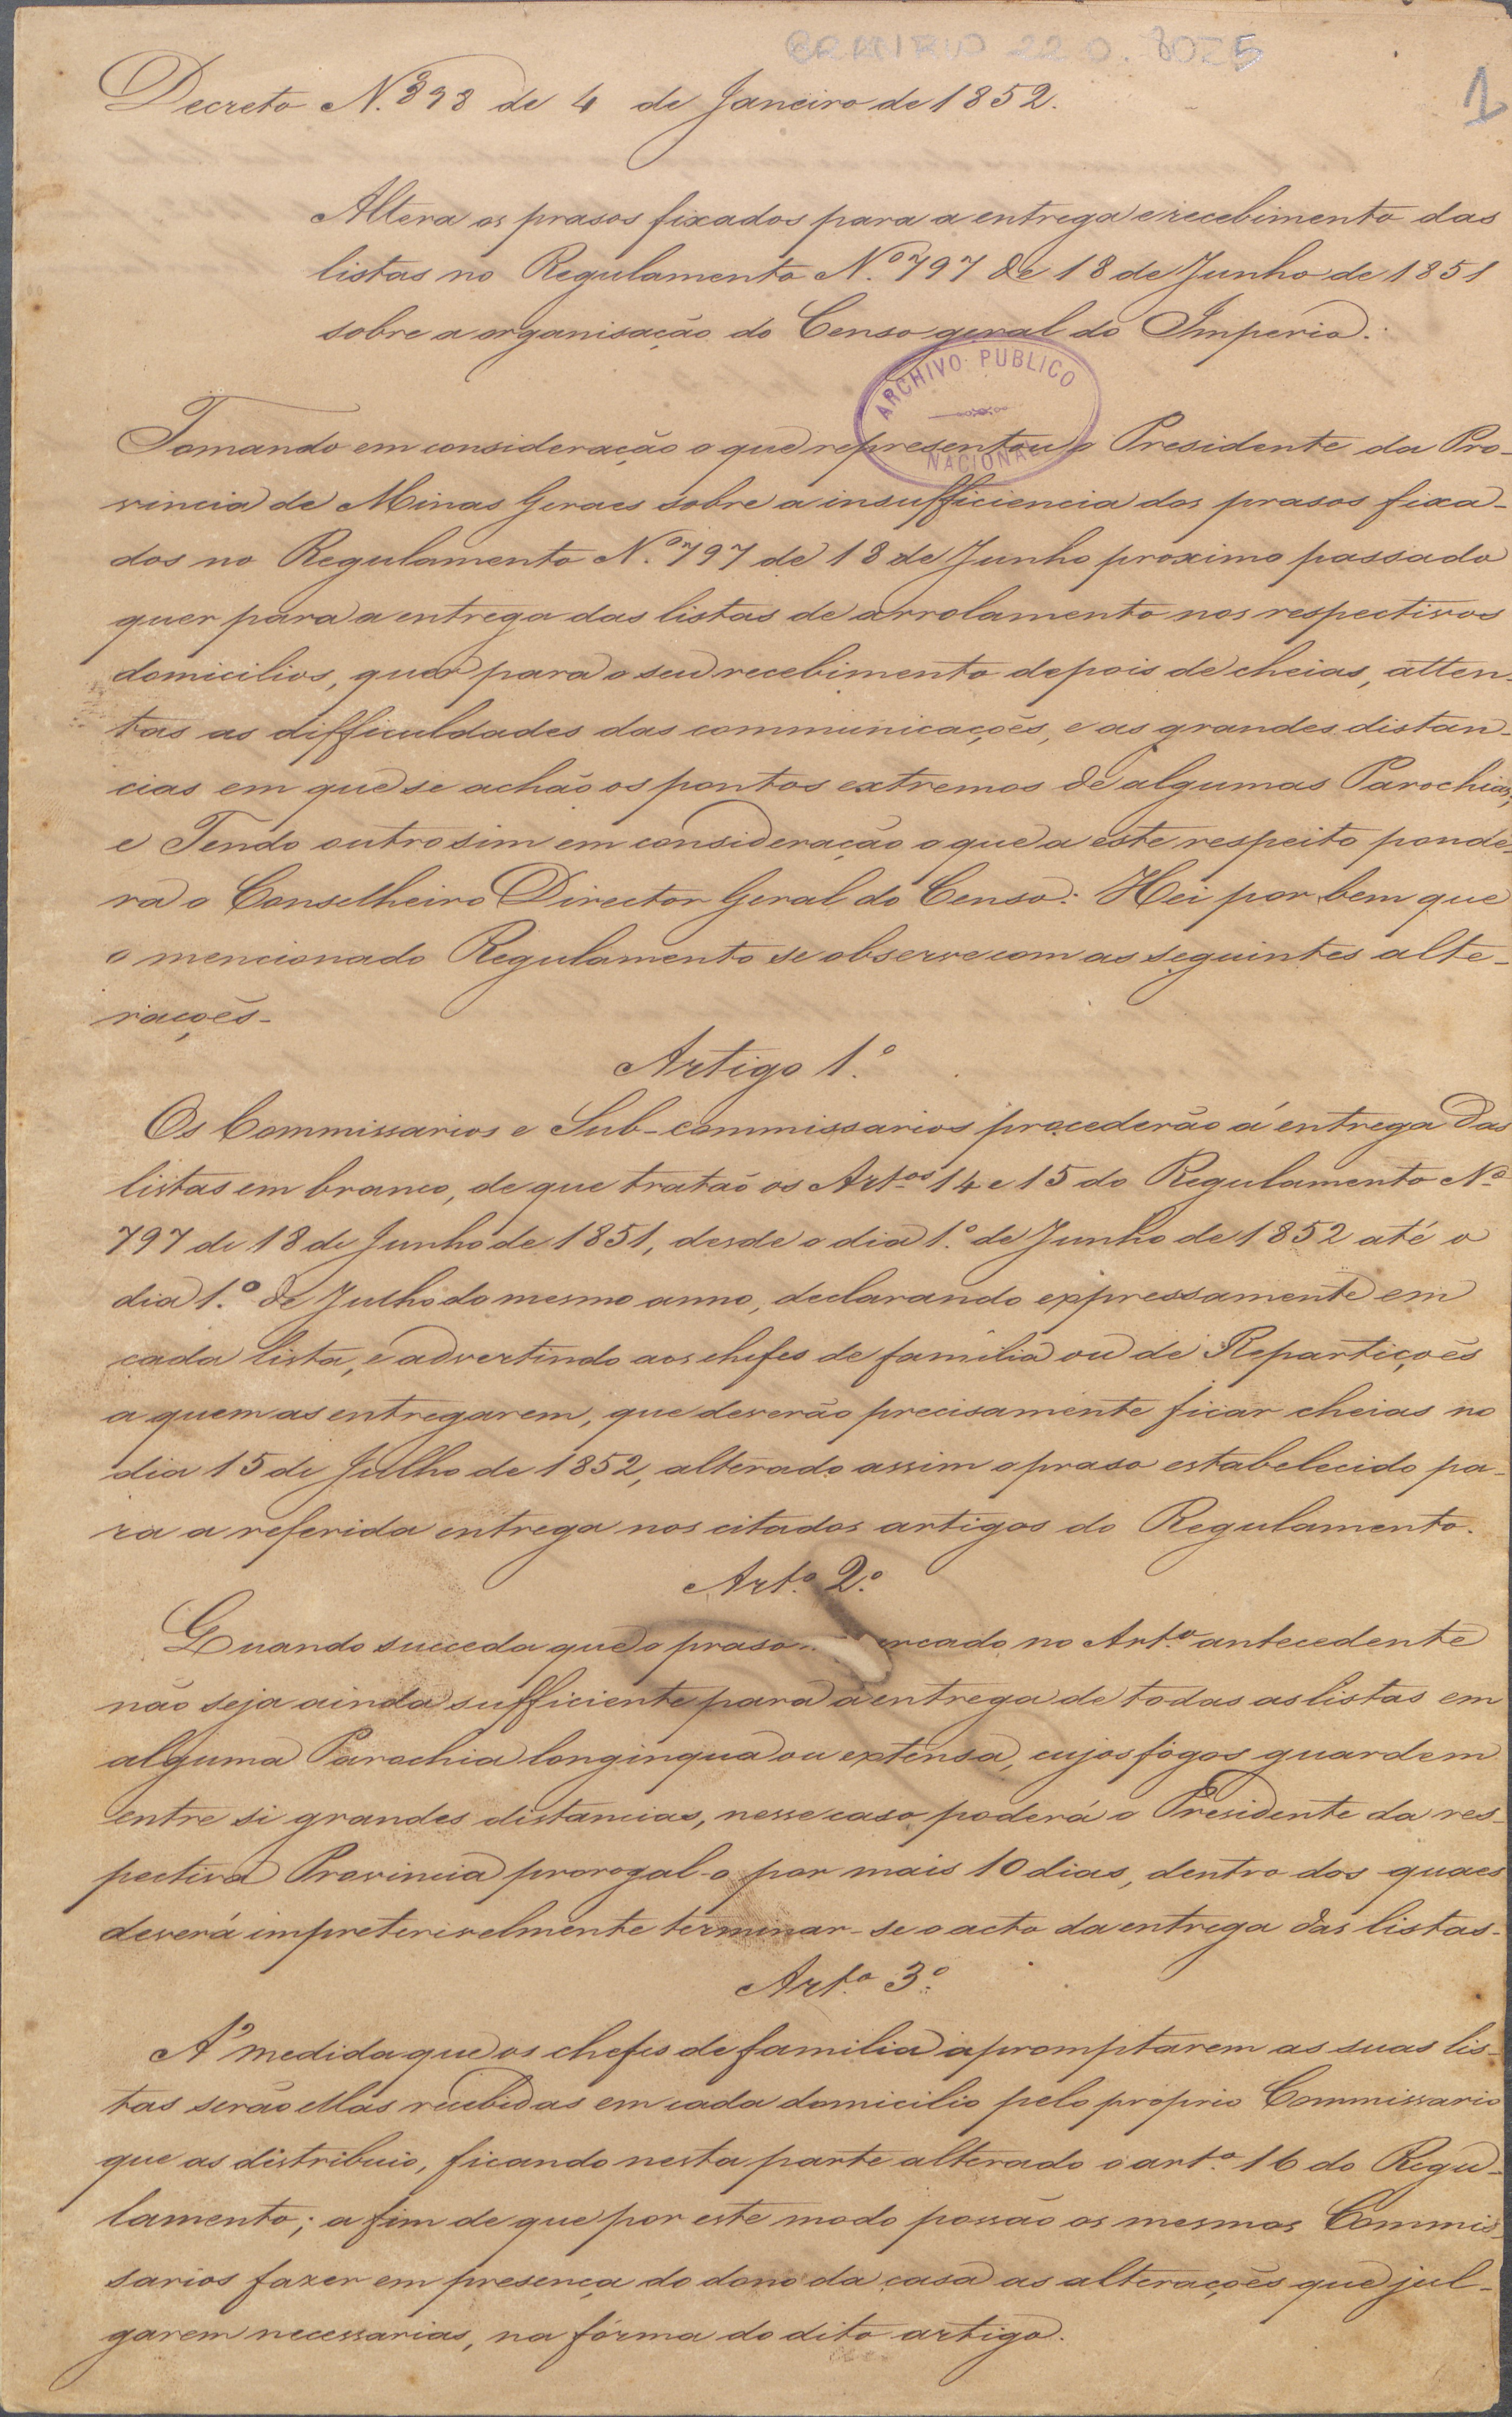 Decreto N.º 898 de 4 de Janeiro de 1852.
1
Altera os prasos fixados para a entrega e recebimento das
listas no Regulamento N.º 797 de 18 de Junho de 1851
sobre a organisação do Censo geral do Imperio.
ARCHIVO PUBLICO
NACIONAL
Tomando em consideração o que representou o Presidente da Pro-
vincia de Minas Geraes sobre a insufficiencia dos prasos fixa-
dos no Regulamento N.º 797 de 18 de Junho proximo passado
quer para a entrega das listas de arrolamento nos respectivos
domicilios, quer para o seu recebimento depois de cheias, atten-
tas as difficuldades das communicações, e as grandes distan-
cias em que se achão os pontos extremos de algumas Parochias,
e Tendo outrosim em consideração o que a este respeito ponde-
ra o Conselheiro Director Geral do Censo: Hei por bem que
o mencionado Regulamento se observe com as seguintes alte-
rações-
Artigo 1.º
Os Commissarios e Sub-commissarios procederão á entrega das
listas em branco, de que tratão os Art.os 14 e 15 do Regulamento Nº
797 de 18 de Junho de 1851, desde o dia 1.º de Junho de 1852 até o
dia 1.º de Julho do mesmo anno, declarando expressamente em
cada lista, e advertindo aos chefes de familia ou de Repartições
a quem as entregarem, que deverão precisamente ficar cheias no
dia 15 de Julho de 1852, alterado assim o praso estabelecido pa-
ra a referida entrega nos citados artigos do Regulamento.
Art.º 2.º
Quando succeda que o praso ercado no Art.º antecedente
não seja ainda sufficiente para a entrega de todas as listas em
alguma Parochia longinqua ou extensa, cujos fógos guardem
entre si grandes distancias, nesse caso poderá o Presidente da res-
pectiva Provincia prorogal-o por mais 10 dias, dentro dos quaes
deverá impreterivelmente terminar-se o acto da entrega das listas.
Art.º 3.º
A' medida que os chefes de familia apromptarem as suas lis-
tas serão ellas recebidas em cada domicilio pelo proprio Commissario
que as distribuio, ficando nesta parte alterado o art.º 16 do Regu-
lamento; a fim de que por este modo possão os mesmos Commis-
sarios fazer em presença do dono da casa as alterações que jul-
garem necessarias, na fórma do dito artigo.